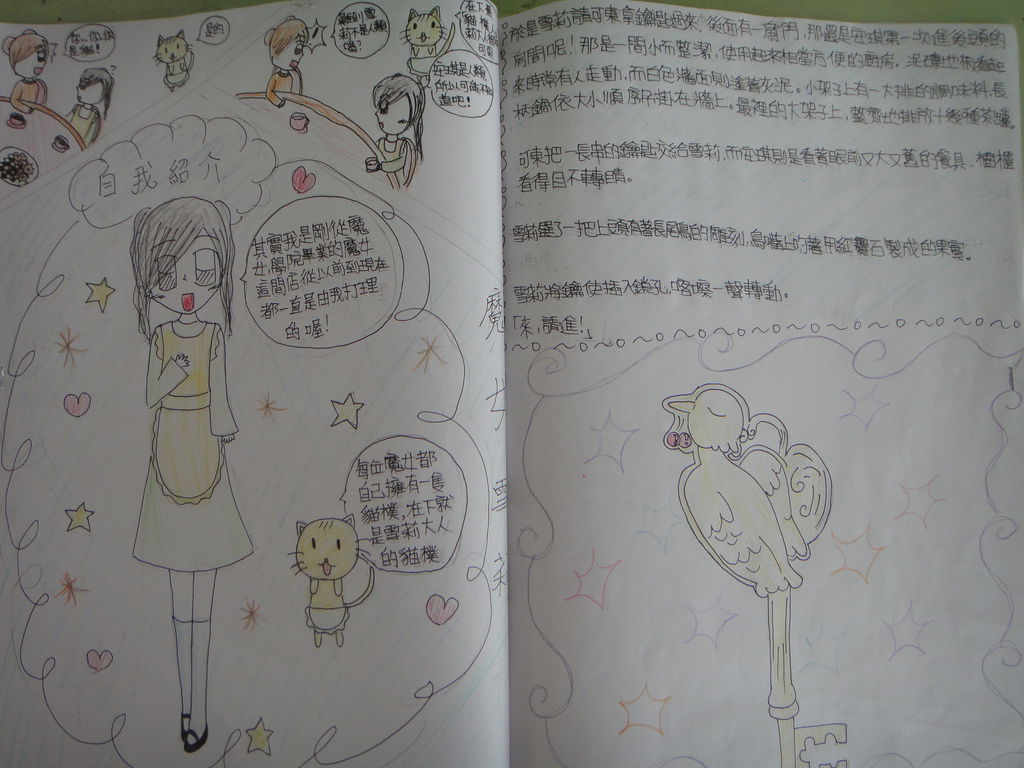 是的
自我紹介
其實我是剛從魔
女學院畢業的魔女
這間店從以前到現在
都一直是由我打理
的喔!
每位魔女都
自己擁有一隻
貓樸,在下就
是雪莉大人
的貓樸
魔女雪莉
於是雪莉請可東拿鑰匙過來,後面有一扇門,那還是安琪第一次進後頭的
房間呢!那是一間小而整潔,使用起來相當方便的廚房。
來時常有人走動,而白色牆面則塗著灰泥。小架子上有一大排的調味料,長
柄鍋依大小順序吊掛在牆上,最裡的大架子上,整齊地排放十幾種茶罐。
可東把一長串的鑰匙交給雪莉,而安琪則是看著眼前又大又舊的餐具、櫥櫃
看得目不轉睛。
雪莉選了一把上頭有著長尾鳥的雕刻,鳥嘴上的著用紅寶石製成的果實。
雪莉將鑰使插入鎖孔,喀嚓一聲轉動。
「來,請進!」